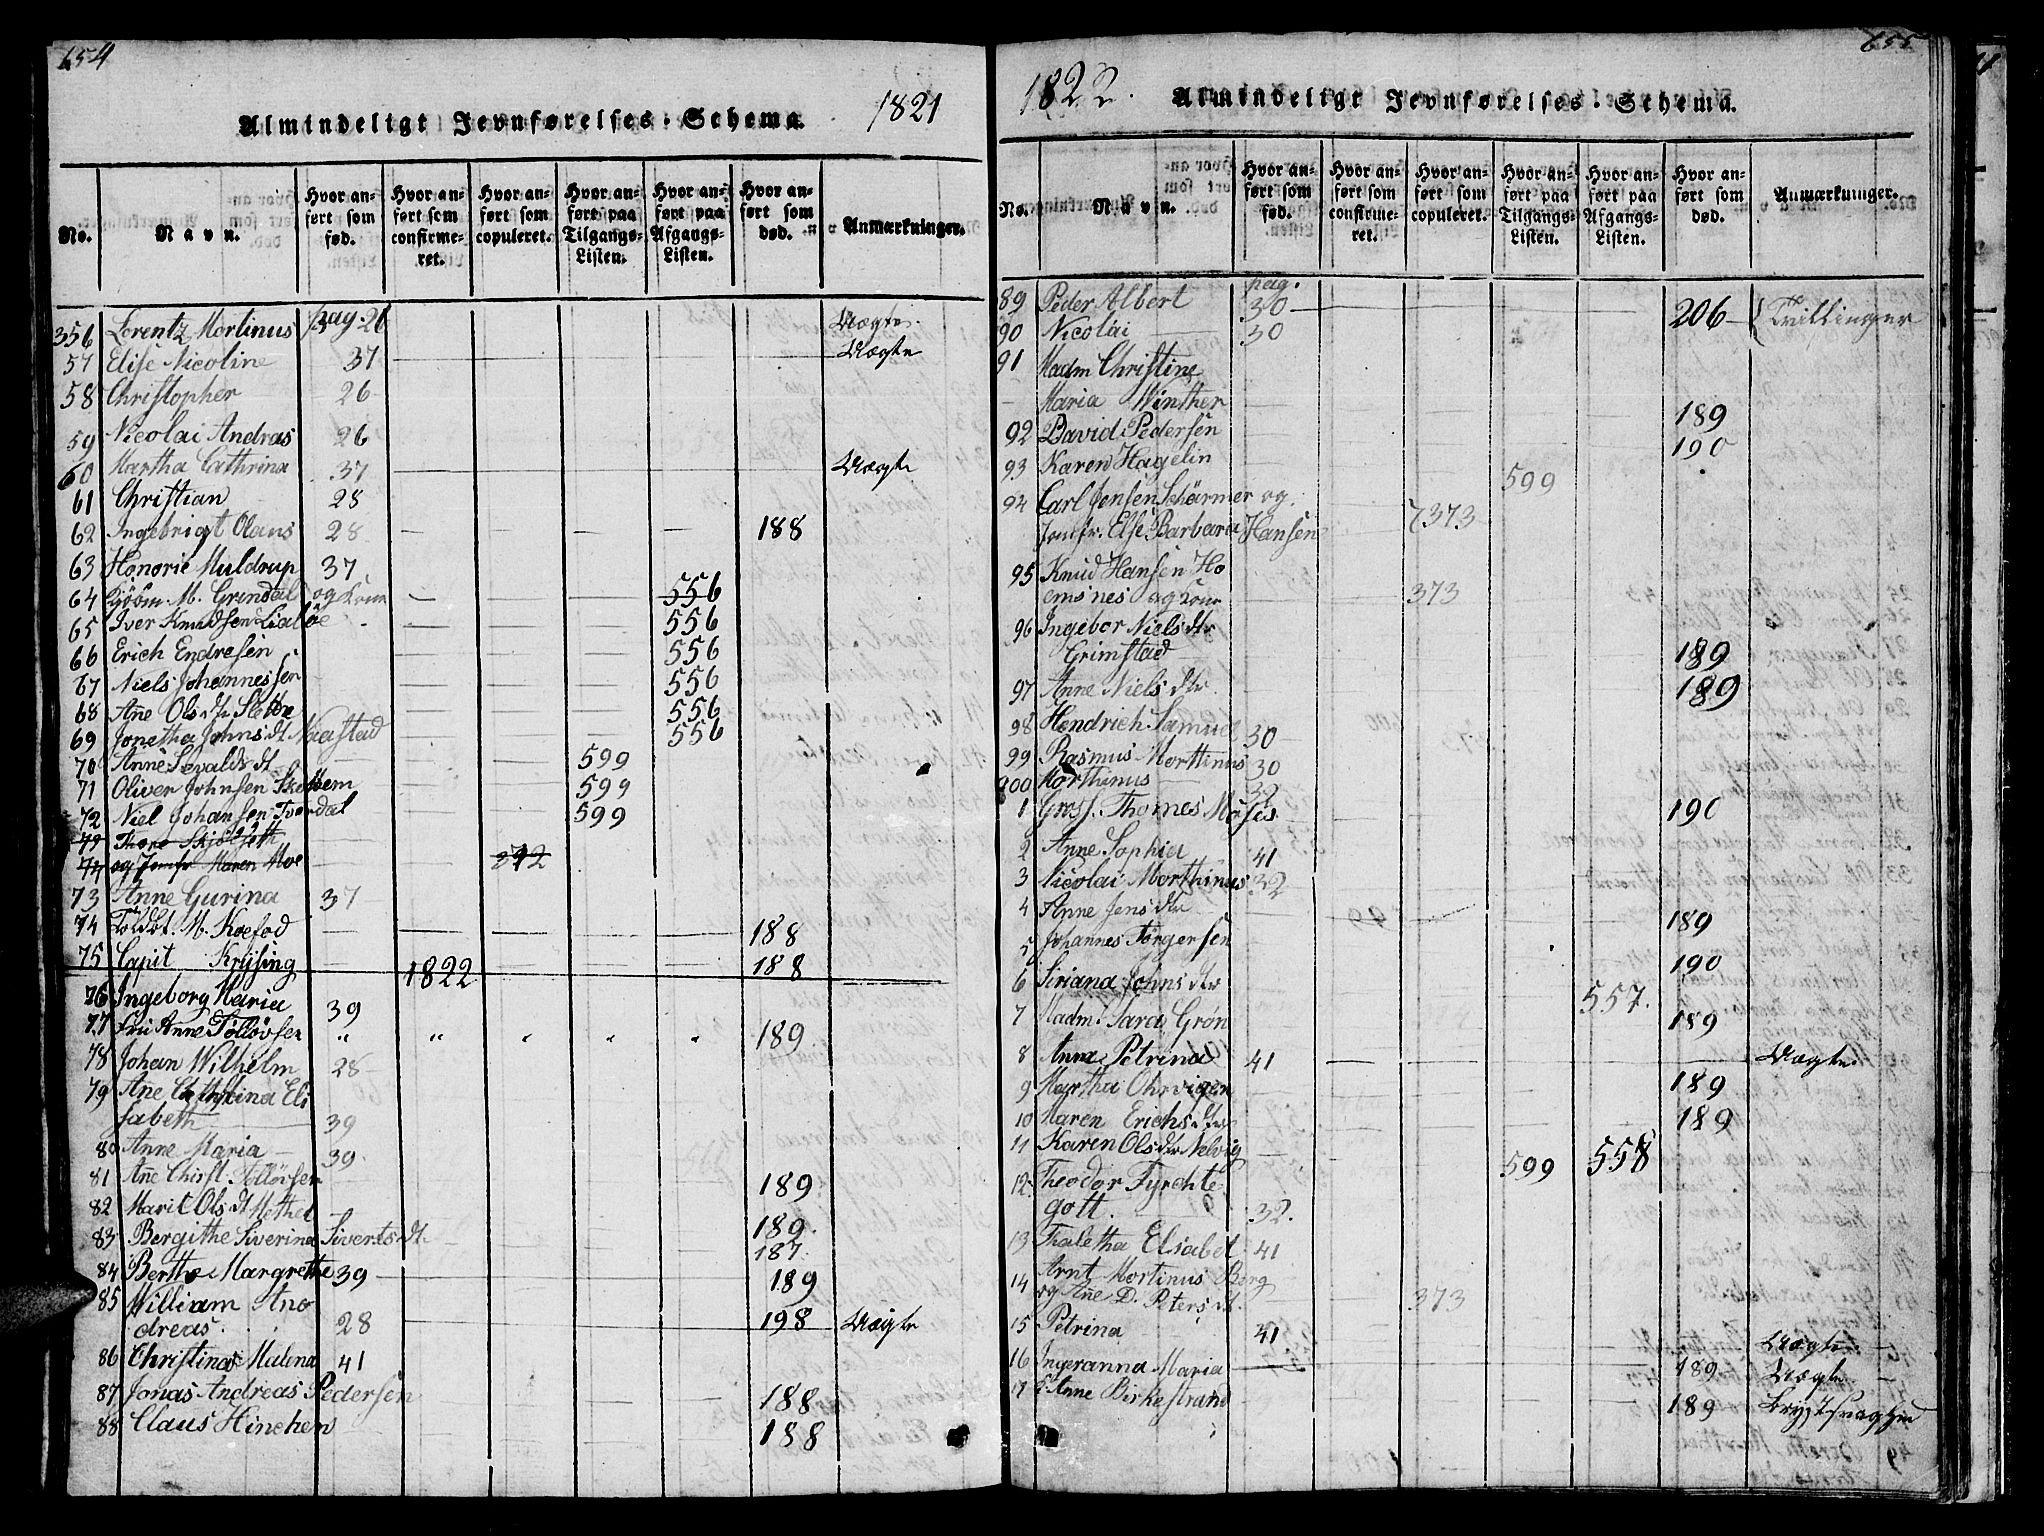 654
Almindeligt Jevnførelses-Schema. 1821
No.
Navn.
Hvor an-ført som fød.
Hvor an-ført som confirme-ret.
Hvor an-ført som copuleret.
Hvor an-ført paa Tilgangs-Listen.
Hvor an-ført paa Afgangs-Listen.
Hvor an-ført som død.
Anmærkninger.
356 Lorentz Mortinus pag. 26 Uægte.
57 Elise Nicoline 37 Uægte
58 Christopher 26
59 Nicolai Andras 26
60 Martha Cathrina 37 Uægte
61 Christian 28
62 Ingebrigt Olaus 28 188
63 Honorie Muldrup 37
64 M. Grendal og Kone 556
65 Iver Knudsen Lialøe 556
66 Erich Endresen 556
67 Niels Johannessen 556
68 Ane Olsdtr Slette 556
69 Jonetha Johnsdt Naerstad 556
70 Anne Sevaldsdt 599
71 Oliver Johnsen 599
72 Niel Johansen Tverdal 599
og Jomfr Maren Moe 372
73 Anne Gurina 37
74 Toldbt. M. Koefod 188
75 Capit Krysing 188
1822
76 Ingeborg Maria 39
77 Fru Anne Tølløvsen " " " " " 189.
78 Johan Wilhelm 28
79 Ane Cathrina Eli
sabeth 39
80 Anne Maria 39
81 Ane Chirst. Tølløvsen 189
82 Marit Olsdt Methel 189.
83 Bergithe Siverina Sivertsdt. 187.
84 Berthe Margrethe 39 189
85 William And
dreas. 28 198 Uægte
86 Christina Malena 41
87 Jonas Andreas Pedersen 188
88 Claus Hinchen 188
655
1822. Almindeligt Jevnførelses-Schema.
No.
Navn.
Hvor an-ført som fød.
Hvor an-ført som confirme-ret.
Hvor an-ført som copuleret.
Hvor an-ført paa Tilgangs-Listen.
Hvor an-ført paa Afgangs-Listen.
Hvor an-ført som død.
Anmærkninger.
pag.
89 Peder Albert 30 206 Trillinger
90 Nicolai 30
91 Madm Christine
Maria Winther 189
92 David Pedersen 190
93 Karen Hagelin 599
94 Carl Jensen Schärmer og
Jomfr. Else Barbara Hansen 373
95 Knud Hansen Ho
emsnes og Kone 373
96 Ingebor Nielsdtr
Grimstad 189
97 Anne Nielsdtr 189
98 Hendrich Samuel 30
99 Rasmus Morttinus 30
900 Morthinus 32
1 Gross. Thomes Møsis 190
2 Anne Sophia 41
3 Nicolai Morthinus 32
4 Anne Jensdtr 189
5 Johannes Törgersen 190
6 Siriana Johnsdtr 557.
7 Madm. Sara Grøn 189
8 Anna Petrina 41 Uægte.
9 Martha 189
10 Maren Erichsdtr 189
11 Karen Olsdtr Nelvig 599 558
12 Theodor Fyrchte
gott. 32.
13 Thaletha Elsabet 41
14 Arnt Mortinus Berg
og Ane D. Petersdt. 373
15 Petrina 41 Uægte
16 Ingeranna Maria 189 Uægte
17 Anne Birkestrand 189